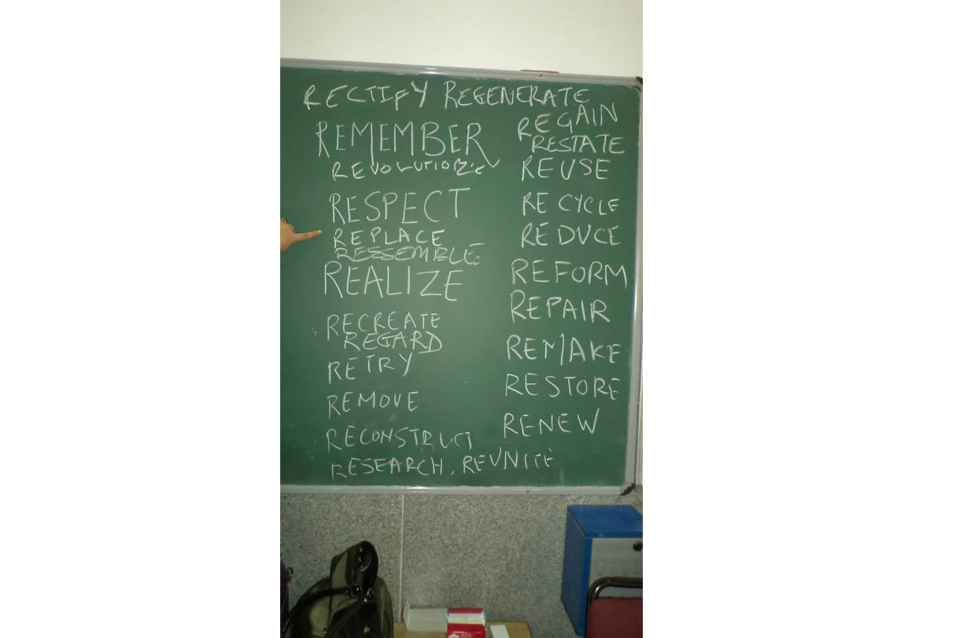 RECTIFY REGENERATE
REMEMBER
REVOLUTIONIZE
RESPECT
REPLACE
RESSEMBLE
REALIZE
RECREATE
REGARD
RETRY
REMOVE
RECONSTRUCT
RESEARCH, REUNITE
REGAIN
RESTATE
REUSE
RECYCLE
REDUCE
REFORM
REPAIR
REMAKE
RESTORE
RENEW